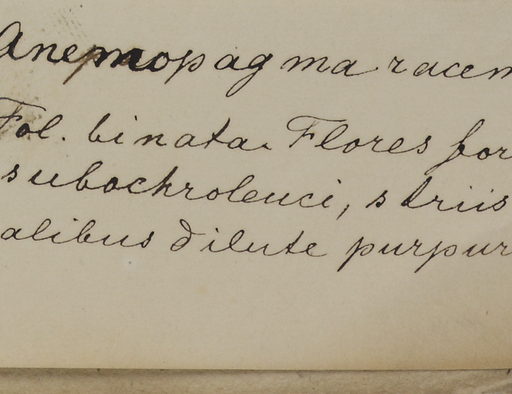 Anemopagma racem
Fol. binata. Flores for
subochroleuci, striis
alibus dilute purpur